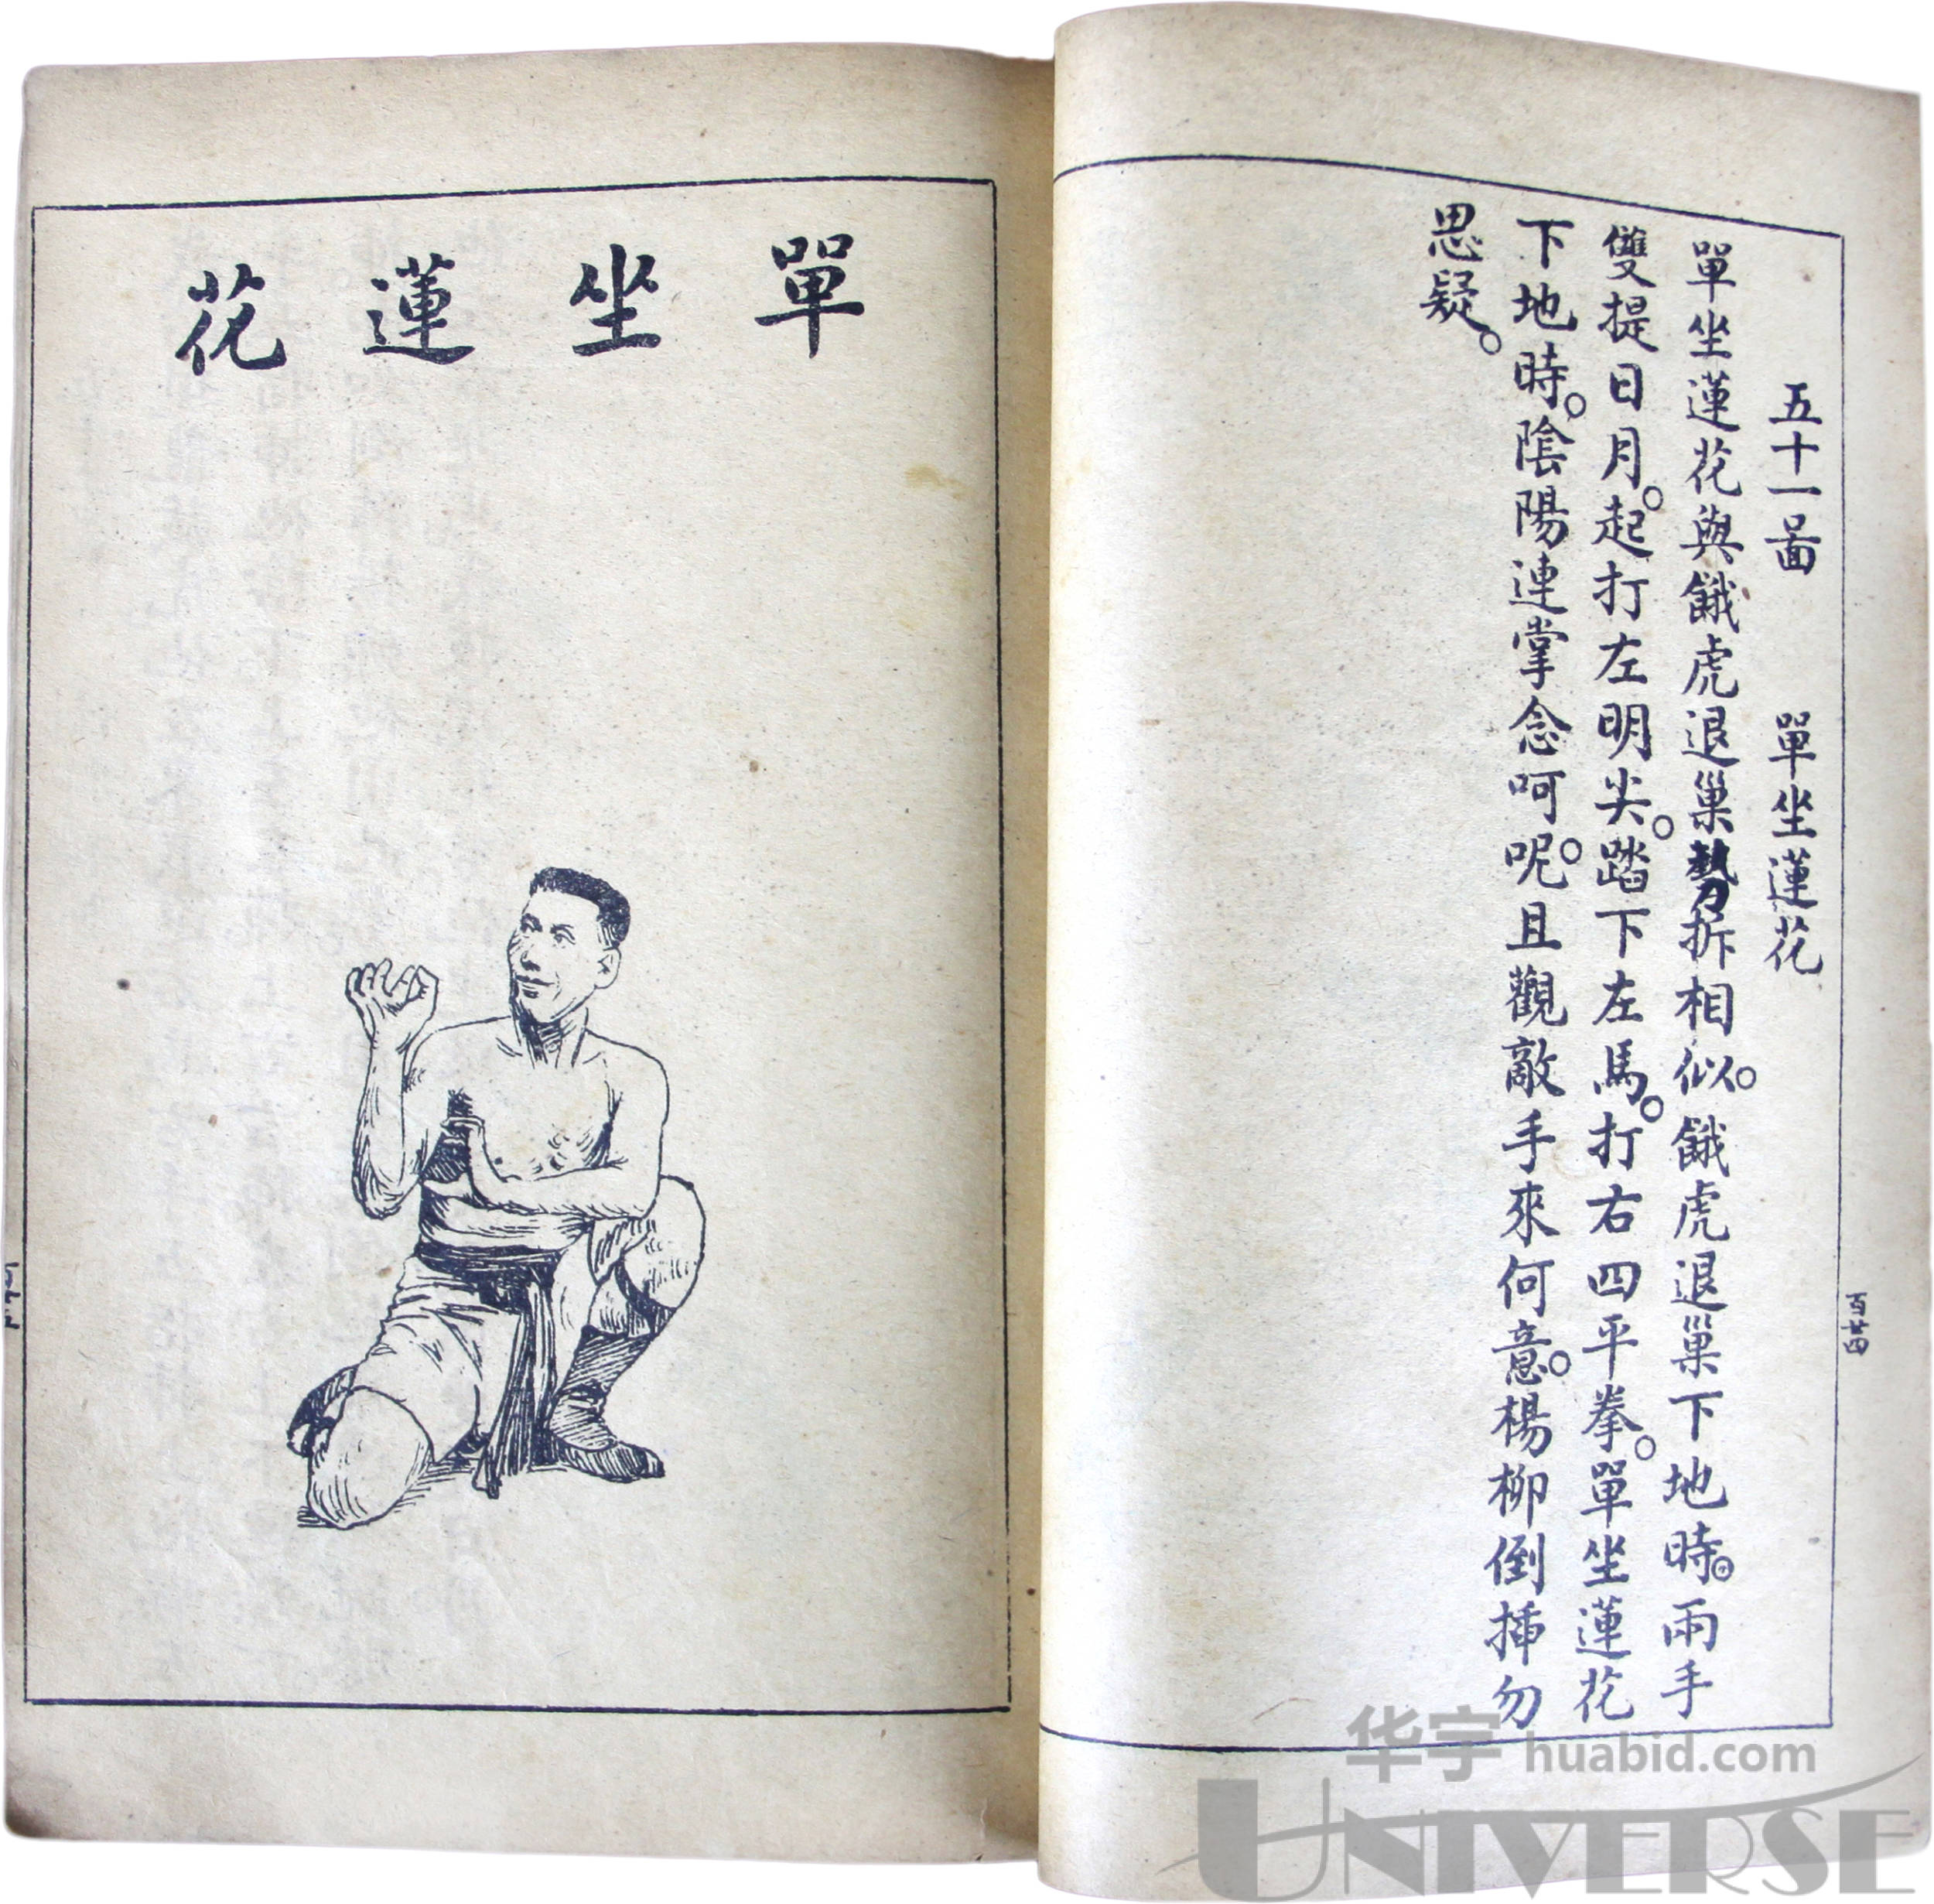 五十一啚 單坐蓮花
單坐蓮花與餓虎退巢勢拆相似。餓虎退巢下地時。兩手
雙提日月。起打左明尖。踏下左馬。打右四平拳。單坐蓮花
下地時。陰陽連掌念呵呢。且觀敵手來何意。楊柳倒插勿
思疑。
百廿四
單坐蓮花
华宇 huabid.com
UNIVERSE